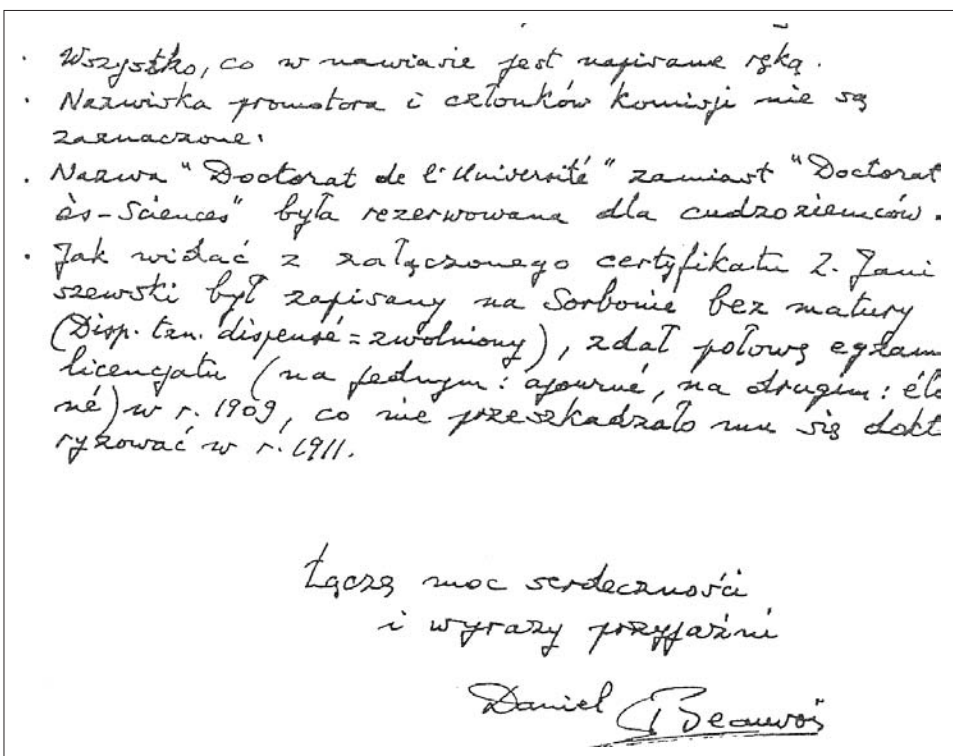 · Wszystko, co w nawiasie jest napisane ręką.
· Nazwiska promotora i członków komisji nie są
zaznaczone.
· Nazwa "Doctorat de l'Université" zamiast "Doctorat
ès-Sciences" była rezerwowana dla cudzoziemców.
· Jak widać z załączonego certyfikatu Z. Jani
szewski był zapisany na Sorbonie bez matury
(Disp. tzn. dispensé = zwolniony), zdał połowę egzam
licencjatu (na jednym: ajourné, na drugim: élo
né) w r. 1909, co nie przeszkadzało mu się dokt
ryzować w r. 1911.
Łączę moc serdeczności
i wyrazy przyjaźni
Daniel Beauvois